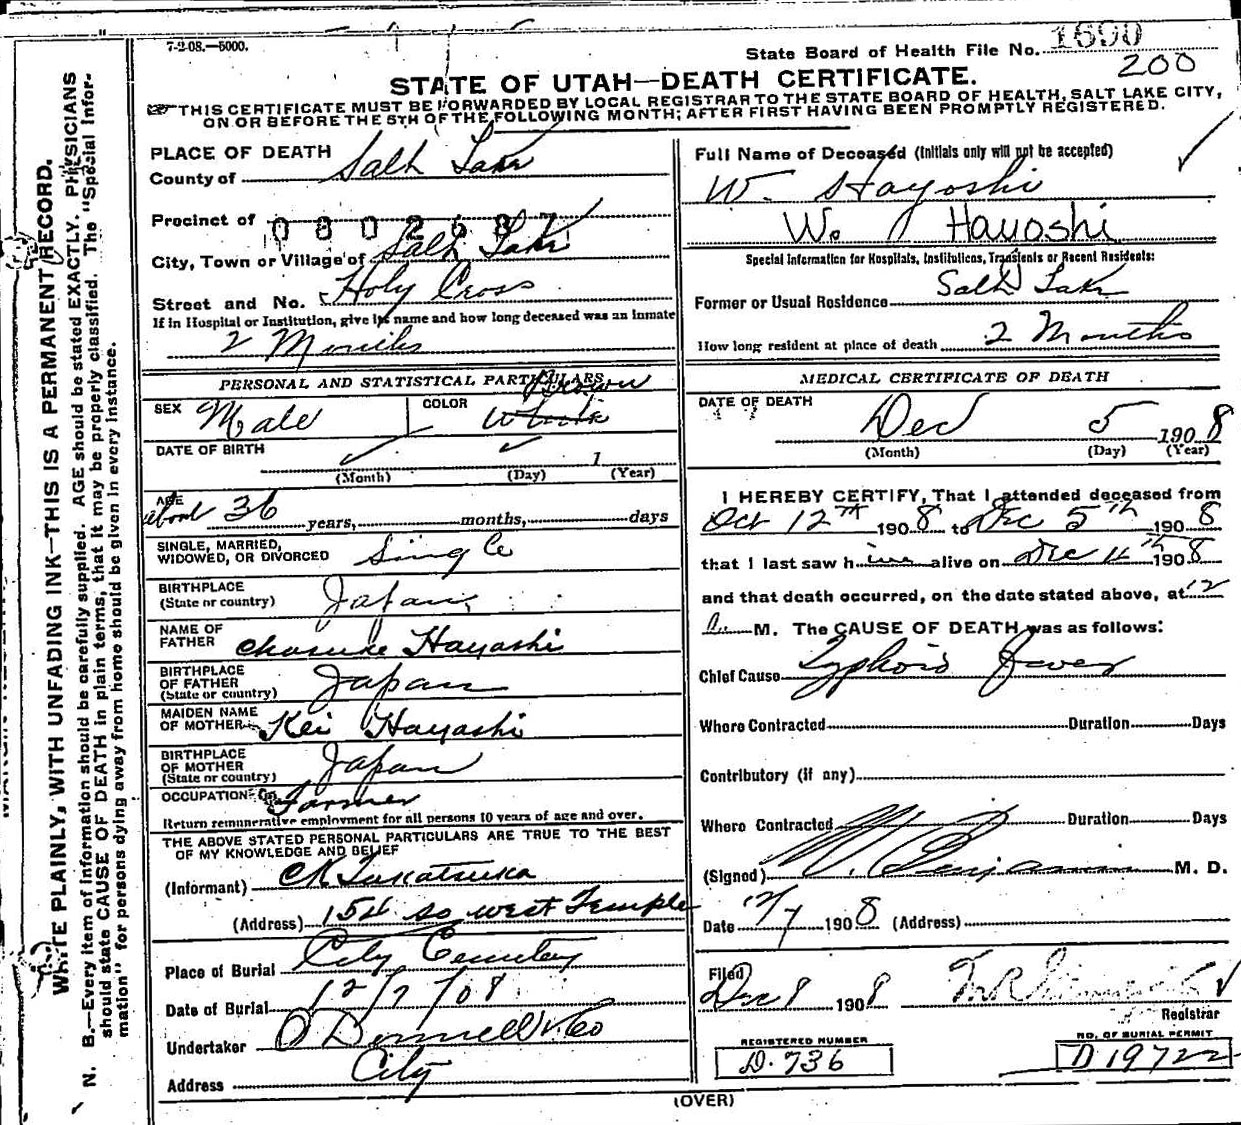 7-2-08.—5000.
State Board of Health File No. 1690
200
STATE OF UTAH—DEATH CERTIFICATE.
THIS CERTIFICATE MUST BE FORWARDED BY LOCAL REGISTRAR TO THE STATE BOARD OF HEALTH, SALT LAKE CITY,
ON OR BEFORE THE 5TH OF THE FOLLOWING MONTH; AFTER FIRST HAVING BEEN PROMPTLY REGISTERED.
WRITE PLAINLY, WITH UNFADING INK—THIS IS A PERMANENT RECORD.
N. B.—Every item of information should be carefully supplied. AGE should be stated EXACTLY. PHYSICIANS
should state CAUSE OF DEATH in plain terms, that it may be properly classified. The "Special Infor-
mation" for persons dying away from home should be given in every instance.
PLACE OF DEATH
County of Salt Lake
Precinct of 0802687
City, Town or Village of Salt Lake
Street and No. Holy Cross
If in Hospital or Institution, give its name and how long deceased was an inmate
2 Months
PERSONAL AND STATISTICAL PARTICULARS
SEX Male COLOR Brown White
DATE OF BIRTH 1
(Month) (Day) (Year)
AGE about 36 years, months, days
SINGLE, MARRIED,
WIDOWED, OR DIVORCED Single
BIRTHPLACE
(State or country) Japan
NAME OF
FATHER Chosuke Hayashi
BIRTHPLACE
OF FATHER
(State or country) Japan
MAIDEN NAME
OF MOTHER Kei Hayashi
BIRTHPLACE
OF MOTHER
(State or country) Japan
OCCUPATION Farmer
Return remunerative employment for all persons 10 years of age and over.
THE ABOVE STATED PERSONAL PARTICULARS ARE TRUE TO THE BEST
OF MY KNOWLEDGE AND BELIEF
(Informant) Takatsuka
(Address) 154 So West Temple
Place of Burial City Cemetery
Date of Burial 12/7/08
Undertaker O'Donnell & Co
Address City
Full Name of Deceased (Initials only will not be accepted)
W. Hayoshi
W. Hayoshi
Special Information for Hospitals, Institutions, Transients or Recent Residents:
Former or Usual Residence Salt Lake
How long resident at place of death 2 Months
MEDICAL CERTIFICATE OF DEATH
DATE OF DEATH
Dec 5 1908
(Month) (Day) (Year)
I HEREBY CERTIFY, That I attended deceased from
Oct 12th 1908 to Dec 5th 1908
that I last saw him alive on Dec 4th 1908
and that death occurred, on the date stated above, at 12
a. M. The CAUSE OF DEATH was as follows:
Chief Cause Typhoid Fever
Where Contracted Duration Days
Contributory (if any)
Where Contracted Duration Days
(Signed) Benjamin M. D.
Date 12/7 1908 (Address)
Filed
Dec 8 1908
Registrar
REGISTERED NUMBER
D. 736
NO. OF BURIAL PERMIT
D 19722
(OVER)